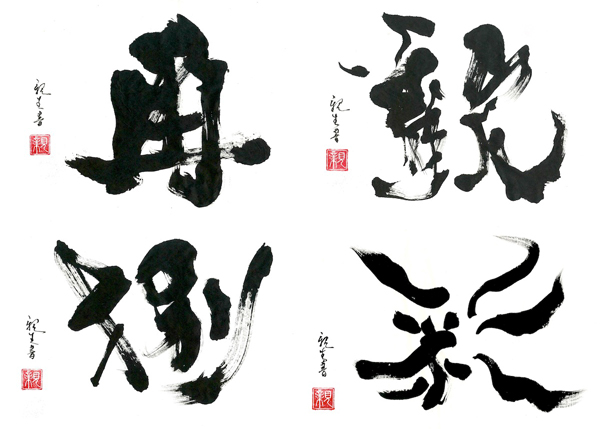 再
親生書
親
観
親生書
親
親生書
親
彩
親生書
親